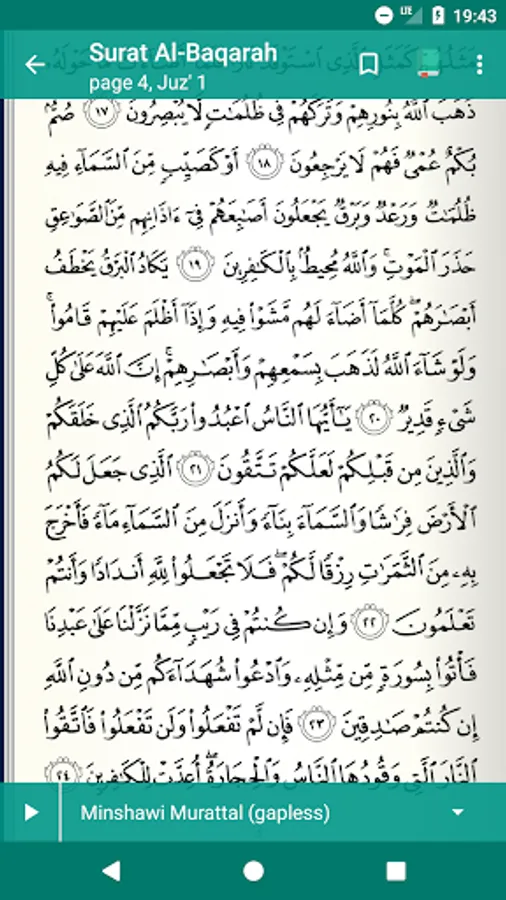 LTE 19:43
Surat Al-Baqarah
page 4, Juz' 1
مَثَلُهُمْ كَمَثَلِ ٱلَّذِى ٱسْتَوْقَدَ نَارًا فَلَمَّآ أَضَآءَتْ مَا حَوْلَهُۥ
ذَهَبَ ٱللَّهُ بِنُورِهِمْ وَتَرَكَهُمْ فِى ظُلُمَٰتٍ لَّا يُبْصِرُونَ ١٧ صُمٌّۢ
بُكْمٌ عُمْىٌ فَهُمْ لَا يَرْجِعُونَ ١٨ أَوْ كَصَيِّبٍ مِّنَ ٱلسَّمَآءِ فِيهِ
ظُلُمَٰتٌ وَرَعْدٌ وَبَرْقٌ يَجْعَلُونَ أَصَٰبِعَهُمْ فِىٓ ءَاذَانِهِم مِّنَ ٱلصَّوَٰعِقِ
حَذَرَ ٱلْمَوْتِ ۚ وَٱللَّهُ مُحِيطٌۢ بِٱلْكَٰفِرِينَ ١٩ يَكَادُ ٱلْبَرْقُ يَخْطَفُ
أَبْصَٰرَهُمْ ۖ كُلَّمَآ أَضَآءَ لَهُم مَّشَوْا۟ فِيهِ وَإِذَآ أَظْلَمَ عَلَيْهِمْ قَامُوا۟ ۚ
وَلَوْ شَآءَ ٱللَّهُ لَذَهَبَ بِسَمْعِهِمْ وَأَبْصَٰرِهِمْ ۚ إِنَّ ٱللَّهَ عَلَىٰ كُلِّ
شَىْءٍ قَدِيرٌ ٢٠ يَٰٓأَيُّهَا ٱلنَّاسُ ٱعْبُدُوا۟ رَبَّكُمُ ٱلَّذِى خَلَقَكُمْ
وَٱلَّذِينَ مِن قَبْلِكُمْ لَعَلَّكُمْ تَتَّقُونَ ٢١ ٱلَّذِى جَعَلَ لَكُمُ
ٱلْأَرْضَ فِرَٰشًا وَٱلسَّمَآءَ بِنَآءً وَأَنزَلَ مِنَ ٱلسَّمَآءِ مَآءً فَأَخْرَجَ
بِهِۦ مِنَ ٱلثَّمَرَٰتِ رِزْقًا لَّكُمْ ۖ فَلَا تَجْعَلُوا۟ لِلَّهِ أَندَادًا وَأَنتُمْ
تَعْلَمُونَ ٢٢ وَإِن كُنتُمْ فِى رَيْبٍ مِّمَّا نَزَّلْنَا عَلَىٰ عَبْدِنَا
فَأْتُوا۟ بِسُورَةٍ مِّن مِّثْلِهِۦ وَٱدْعُوا۟ شُهَدَآءَكُم مِّن دُونِ ٱللَّهِ
إِن كُنتُمْ صَٰدِقِينَ ٢٣ فَإِن لَّمْ تَفْعَلُوا۟ وَلَن تَفْعَلُوا۟ فَٱتَّقُوا۟
ٱلنَّارَ ٱلَّتِى وَقُودُهَا ٱلنَّاسُ وَٱلْحِجَارَةُ ۖ أُعِدَّتْ لِلْكَٰفِرِينَ ٢٤
Minshawi Murattal (gapless)